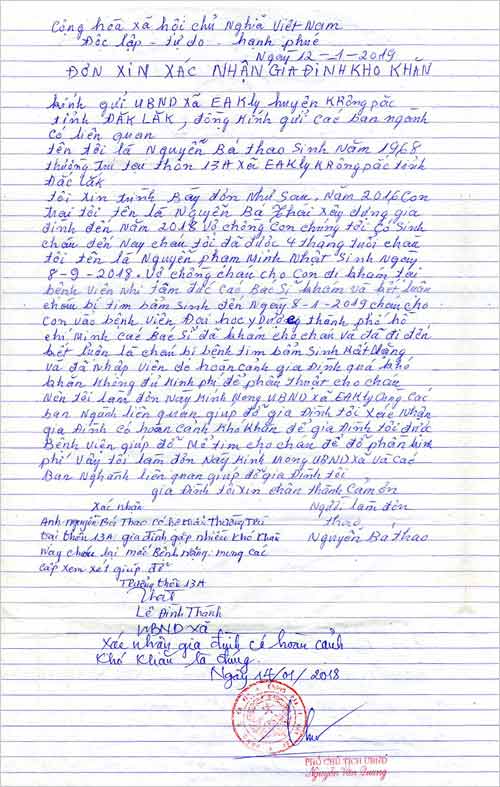 Cộng hoà xã hội chủ Nghĩa Việt Nam
Độc lập - tự do - hạnh phúc
Ngày 12-1-2019
ĐƠN XIN XÁC NHẬN GIA ĐÌNH KHO KHĂN
kính gửi UBND Xã EAKly huyện KRôngpắc
tỉnh ĐĂK LĂK, đồng kính gửi các Ban ngành
có liên quan
tên tôi là Nguyễn Bá thao Sinh Năm 1968
thường trú tại thôn 13A xã EAKLy KRôngpắc tỉnh
Đắc lắk
tôi Xin trình Bày đơn Như Sau, Năm 2016 Con
trai tôi tên là Nguyễn Bá Khải Xây dựng gia
đình đến Năm 2018 vợ chồng Con chúng tôi có Sinh
cháu đến Nay cháu tôi đã được 4 tháng tuổi cháu
tôi tên là Nguyễn phạm Minh Nhật Sinh Ngày
8-9-2018. Vợ chồng cháu cho Con đi khám tại
bệnh viện Nhi tâm đức các Bác Sĩ khám và kết luận
cháu bị tim bẩm Sinh đến Ngày 8-1-2019 cháu cho
Con vào bệnh viện Đại học y Dược thành phố hồ
chí Minh các Bác Sĩ đã khám cho cháu và đã đi đến
kết luận là cháu bị bệnh tim bẩm Sinh Rất Nặng
và đã Nhập viện do hoàn cảnh gia đình quá khó
khăn không đủ kinh phí để phẫu thuật cho cháu
Nên tôi làm đơn Này kính Mong UBND Xã EAKly cùng các
ban Ngành liên quan giúp đỡ gia đình tôi Xác Nhận
gia đình có hoàn cảnh kho khăn để gia đình tôi được
Bệnh viện giúp đỡ Mổ tim cho cháu để đỡ phần kinh
phí vậy tôi làm đơn Này kính Mong UBND Xã và các
Ban Nghành liên quan giúp đỡ gia đình tôi
gia đình tôi xin chân thành Cảm ơn
Xác nhận
Người làm đơn
Anh nguyễn Bá Thao có hộ khẩu Thường Trú
thao
tại thôn 13A gia đình gặp nhiều khó khăn
Nguyễn Bá thao
nay cháu lại mắc Bệnh nặng. mong các
cấp xem xét giúp đỡ
Trưởng thôn 13A
Lê Đình Thành
UBND Xã
Xác nhận gia đình có hoàn cảnh
khó khăn là đúng.
Ngày 14/01/2018
PHÓ CHỦ TỊCH UBND
Nguyễn Văn Quang